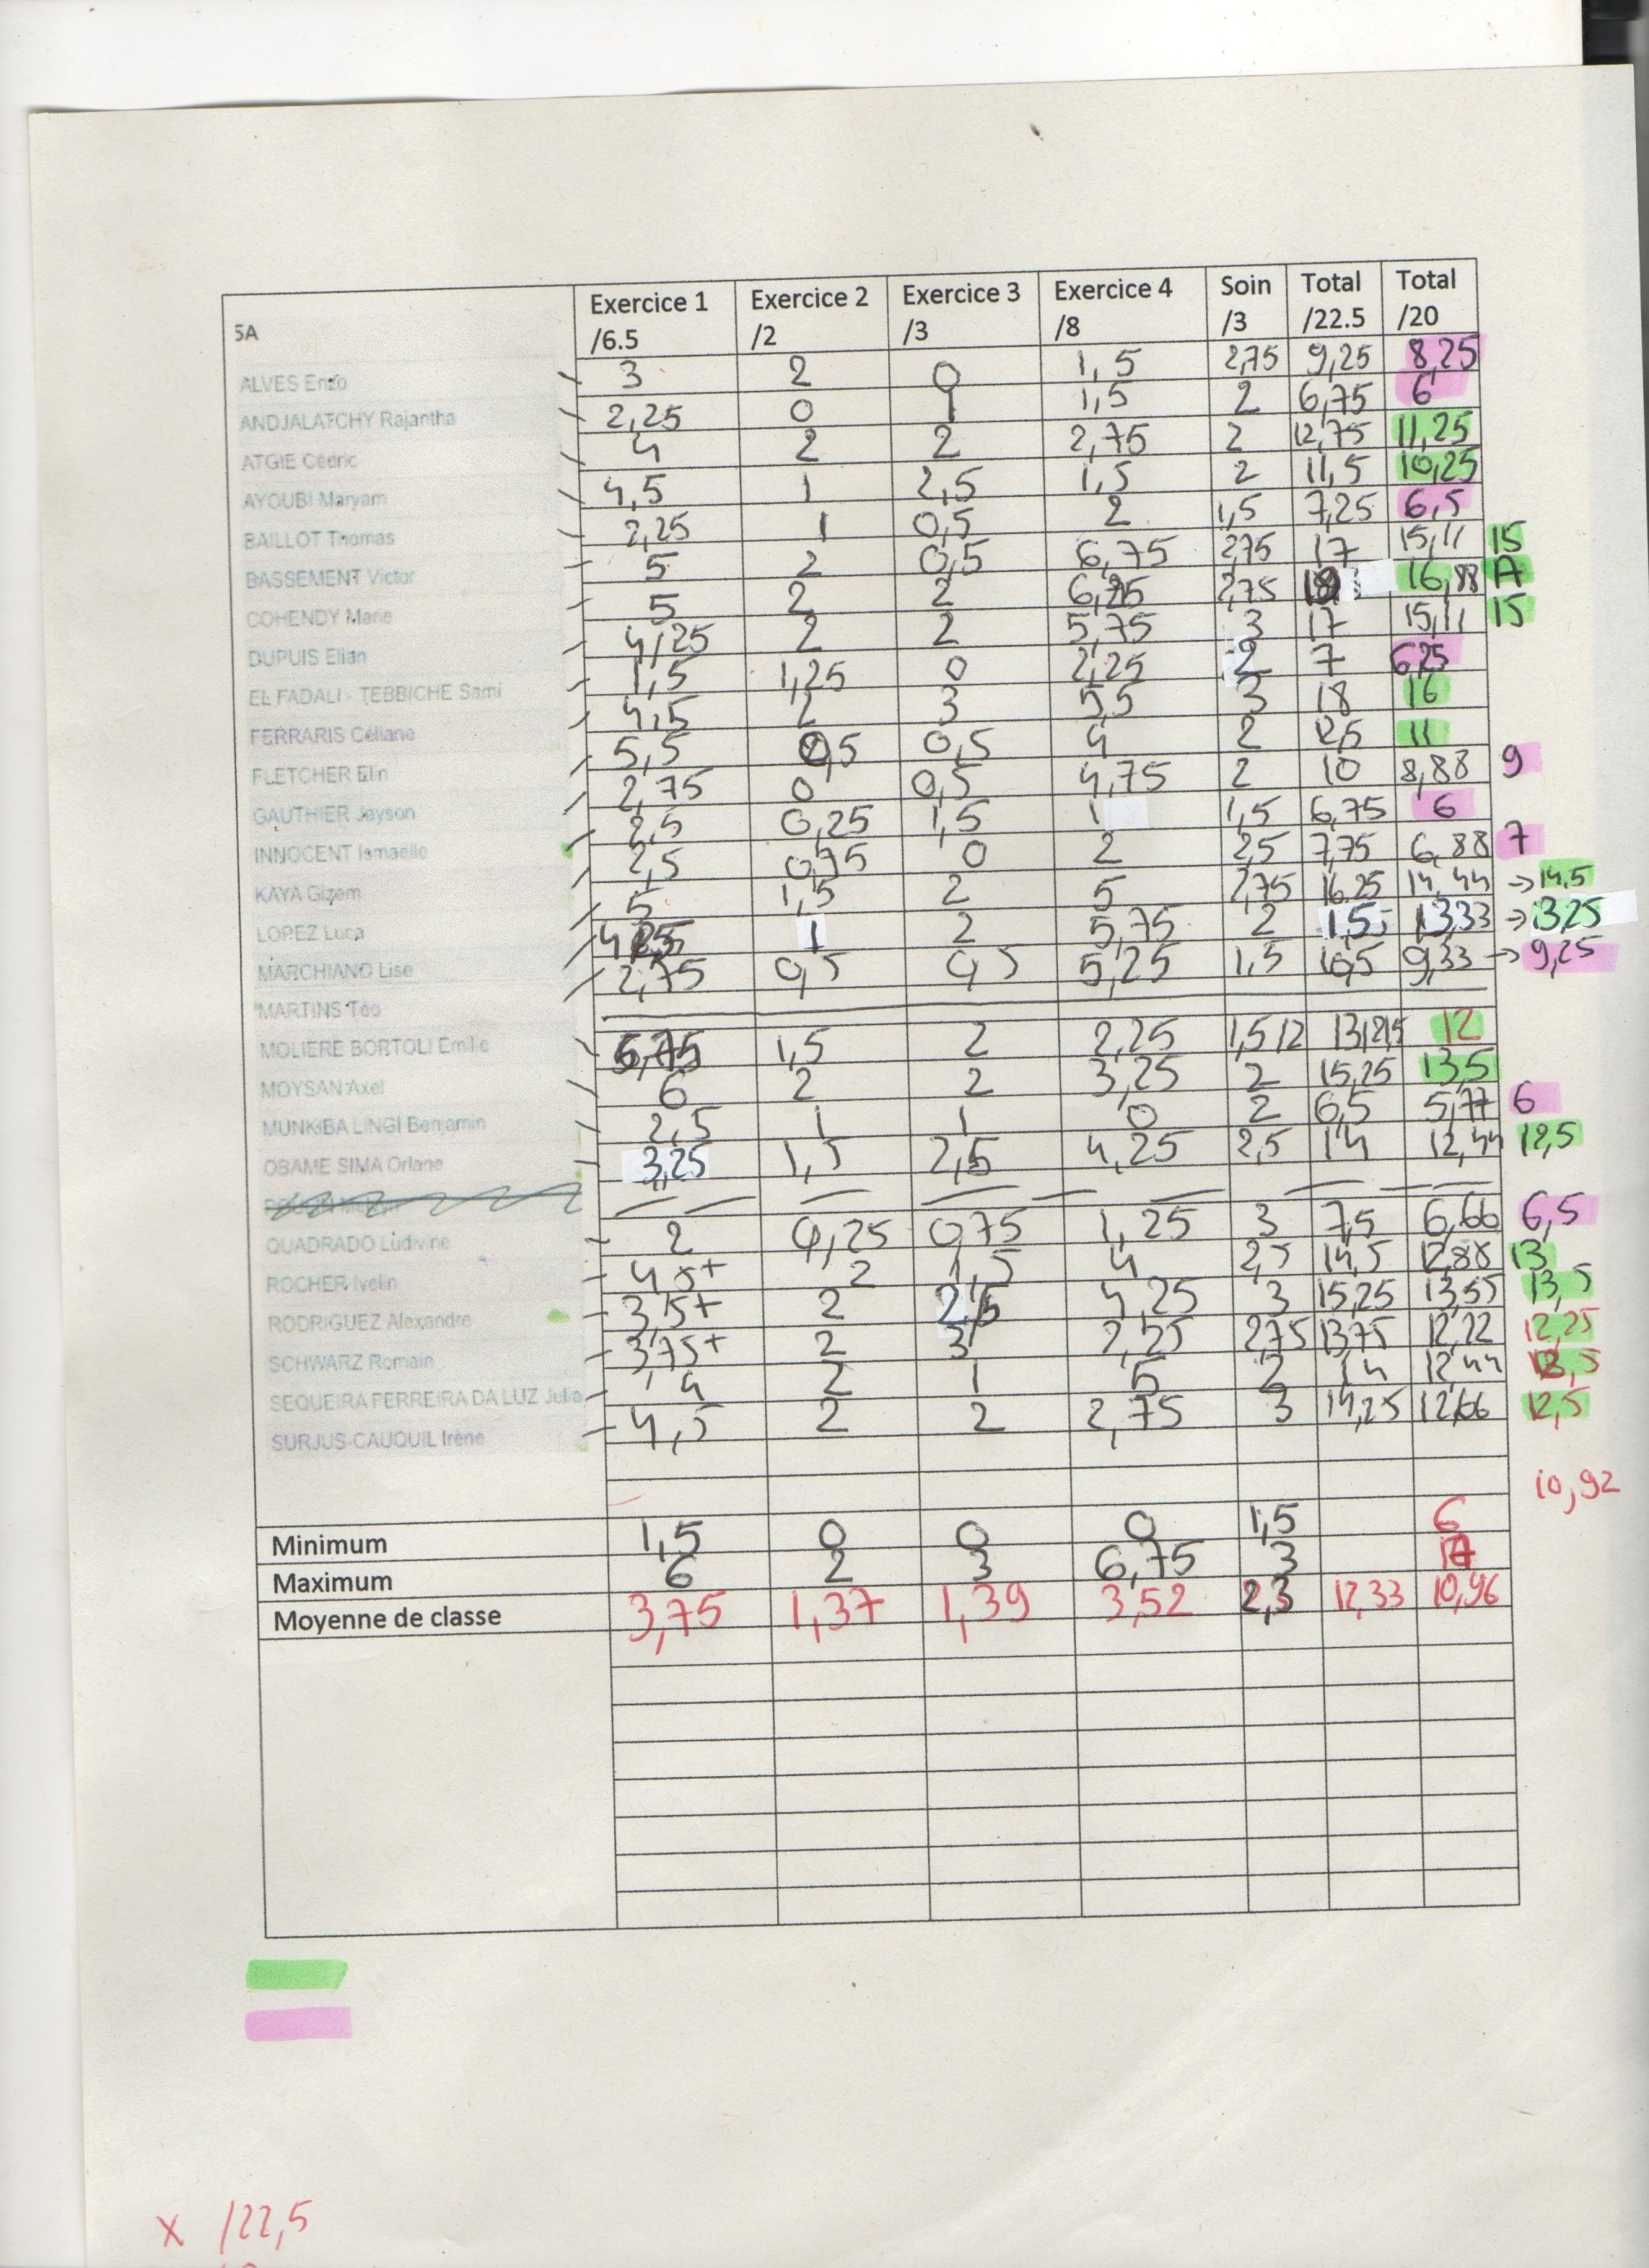 5A Exercice 1 /6.5 Exercice 2 /2 Exercice 3 /3 Exercice 4 /8 Soin /3 Total /22.5 Total /20
ALVES Enzo 3 2 0 1,5 2,75 9,25 8,25
ANDJALATCHY Rajantha 2,25 0 1 1,5 2 6,75 6
ATGIE Cédric 4 2 2 2,75 2 12,75 11,25
AYOUBI Maryam 4,5 1 2,5 1,5 2 11,5 10,25
BAILLOT Thomas 2,25 1 0,5 2 1,5 7,25 6,5
BASSEMENT Victor 5 2 0,5 6,75 2,75 17 15,11 15
COHENDY Marie 5 2 2 6,25 2,75 16,88 17
DUPUIS Elian 4,25 2 2 5,75 3 17 15,11 15
EL FADALI - TEBBICHE Sami 1,5 1,25 0 2,25 2 7 6,25
FERRARIS Céliane 4,5 2 3 5,5 3 18 16
FLETCHER Elin 5,5 0,5 0,5 4 2 12,5 11
GAUTHIER Jayson 2,75 0 0,5 4,75 2 10 8,88 9
INNOCENT Ismaelle 2,5 0,25 1,5 1 1,5 6,75 6
KAYA Gizem 2,5 0,75 0 2 2,5 7,75 6,88 7
LOPEZ Luca 5 1,5 2 5 2,75 16.25 14,44 → 14,5
MARCHIANO Lise 4,25 1 2 5,75 2 15 13,33 → 13,25
MARTINS Téo 2,75 0,5 0,5 5,25 1,5 10,5 9,33 → 9,25
MOLIERE BORTOLI Emilie
MOYSAN Axel 1,5 2 2,25 1,5/2 12
MUNKIBA LINGI Benjamin 6 2 2 3,25 2 15,25 13,5
OBAME SIMA Orlane 2,5 1 1 0 2 6,5 5,77 6
3,25 1,5 2,5 4,25 2,5 14 12,44 12,5
QUADRADO Ludivine 2 0,25 0,75 1,25 3 7,5 6,66 6,5
ROCHER Ivelin 4,5+ 2 1,5 4 2,5 14,5 12,88 13
RODRIGUEZ Alexandre 3,5+ 2 2,5 4,25 3 15,25 13,55 13,5
SCHWARZ Romain 3,75+ 2 3 2,25 2,75 13,75 12,22 12,25
SEQUEIRA FERREIRA DA LUZ Julia 4 2 1 5 2 14 12,44 12,5
SURJUS-CAUQUIL Irène 4,5 2 2 2,75 3 14,25 12,66 12,5
10,92
Minimum 1,5 0 0 0 1,5 6
Maximum 6 2 3 6,75 3 17
Moyenne de classe 3,75 1,37 1,39 3,52 2,3 12,33 10,96
x /22,5